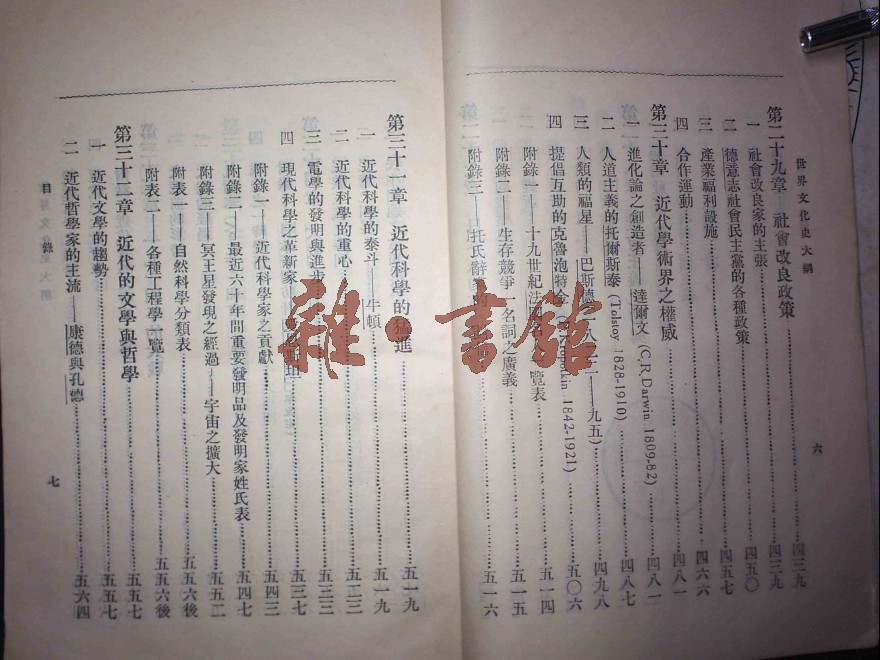 世界文化史大綱
六
第二十九章 社會改良政策……四三九
一 社會改良家的主張……四三九
二 德意志社會民主黨的各種政策……四五〇
三 產業福利設施……四五七
四 合作運動……四六六
第三十章 近代學術界之權威……四八一
一 進化論之創造者——達爾文(C.R.Darwin 1809-82)……四八一
二 人道主義的托爾斯泰(Tolsoy 1828-1910)……四八七
三 人類的福星——巴斯德……四九八
四 提倡互助的克魯泡特金 1842-1921)……五〇六
附錄一——十九世紀法國 覽表……五一四
附錄二——生存競爭一名詞之廣義……五一五
附錄三——托氏辭……五一六
第三十一章 近代科學的猛進……五一九
一 近代科學的泰斗——牛頓……五一九
二 近代科學的重心……五二三
三 電學的發明與進步……五三三
四 現代科學之革新家……五三七
附錄一——近代科學家之貢獻……五四三
附錄二——最近六十年間重要發明品及發明家姓氏表……五四七
附錄三——冥王星發現之經過——宇宙之擴大……五五二
附表一——自然科學分類表……五五六後
附表二——各種工程學一覽……五五六後
第三十二章 近代的文學與哲學……五五七
一 近代文學的趨勢……五五七
二 近代哲學家的主流——康德與孔德……五六四
目錄
七
雜·書館